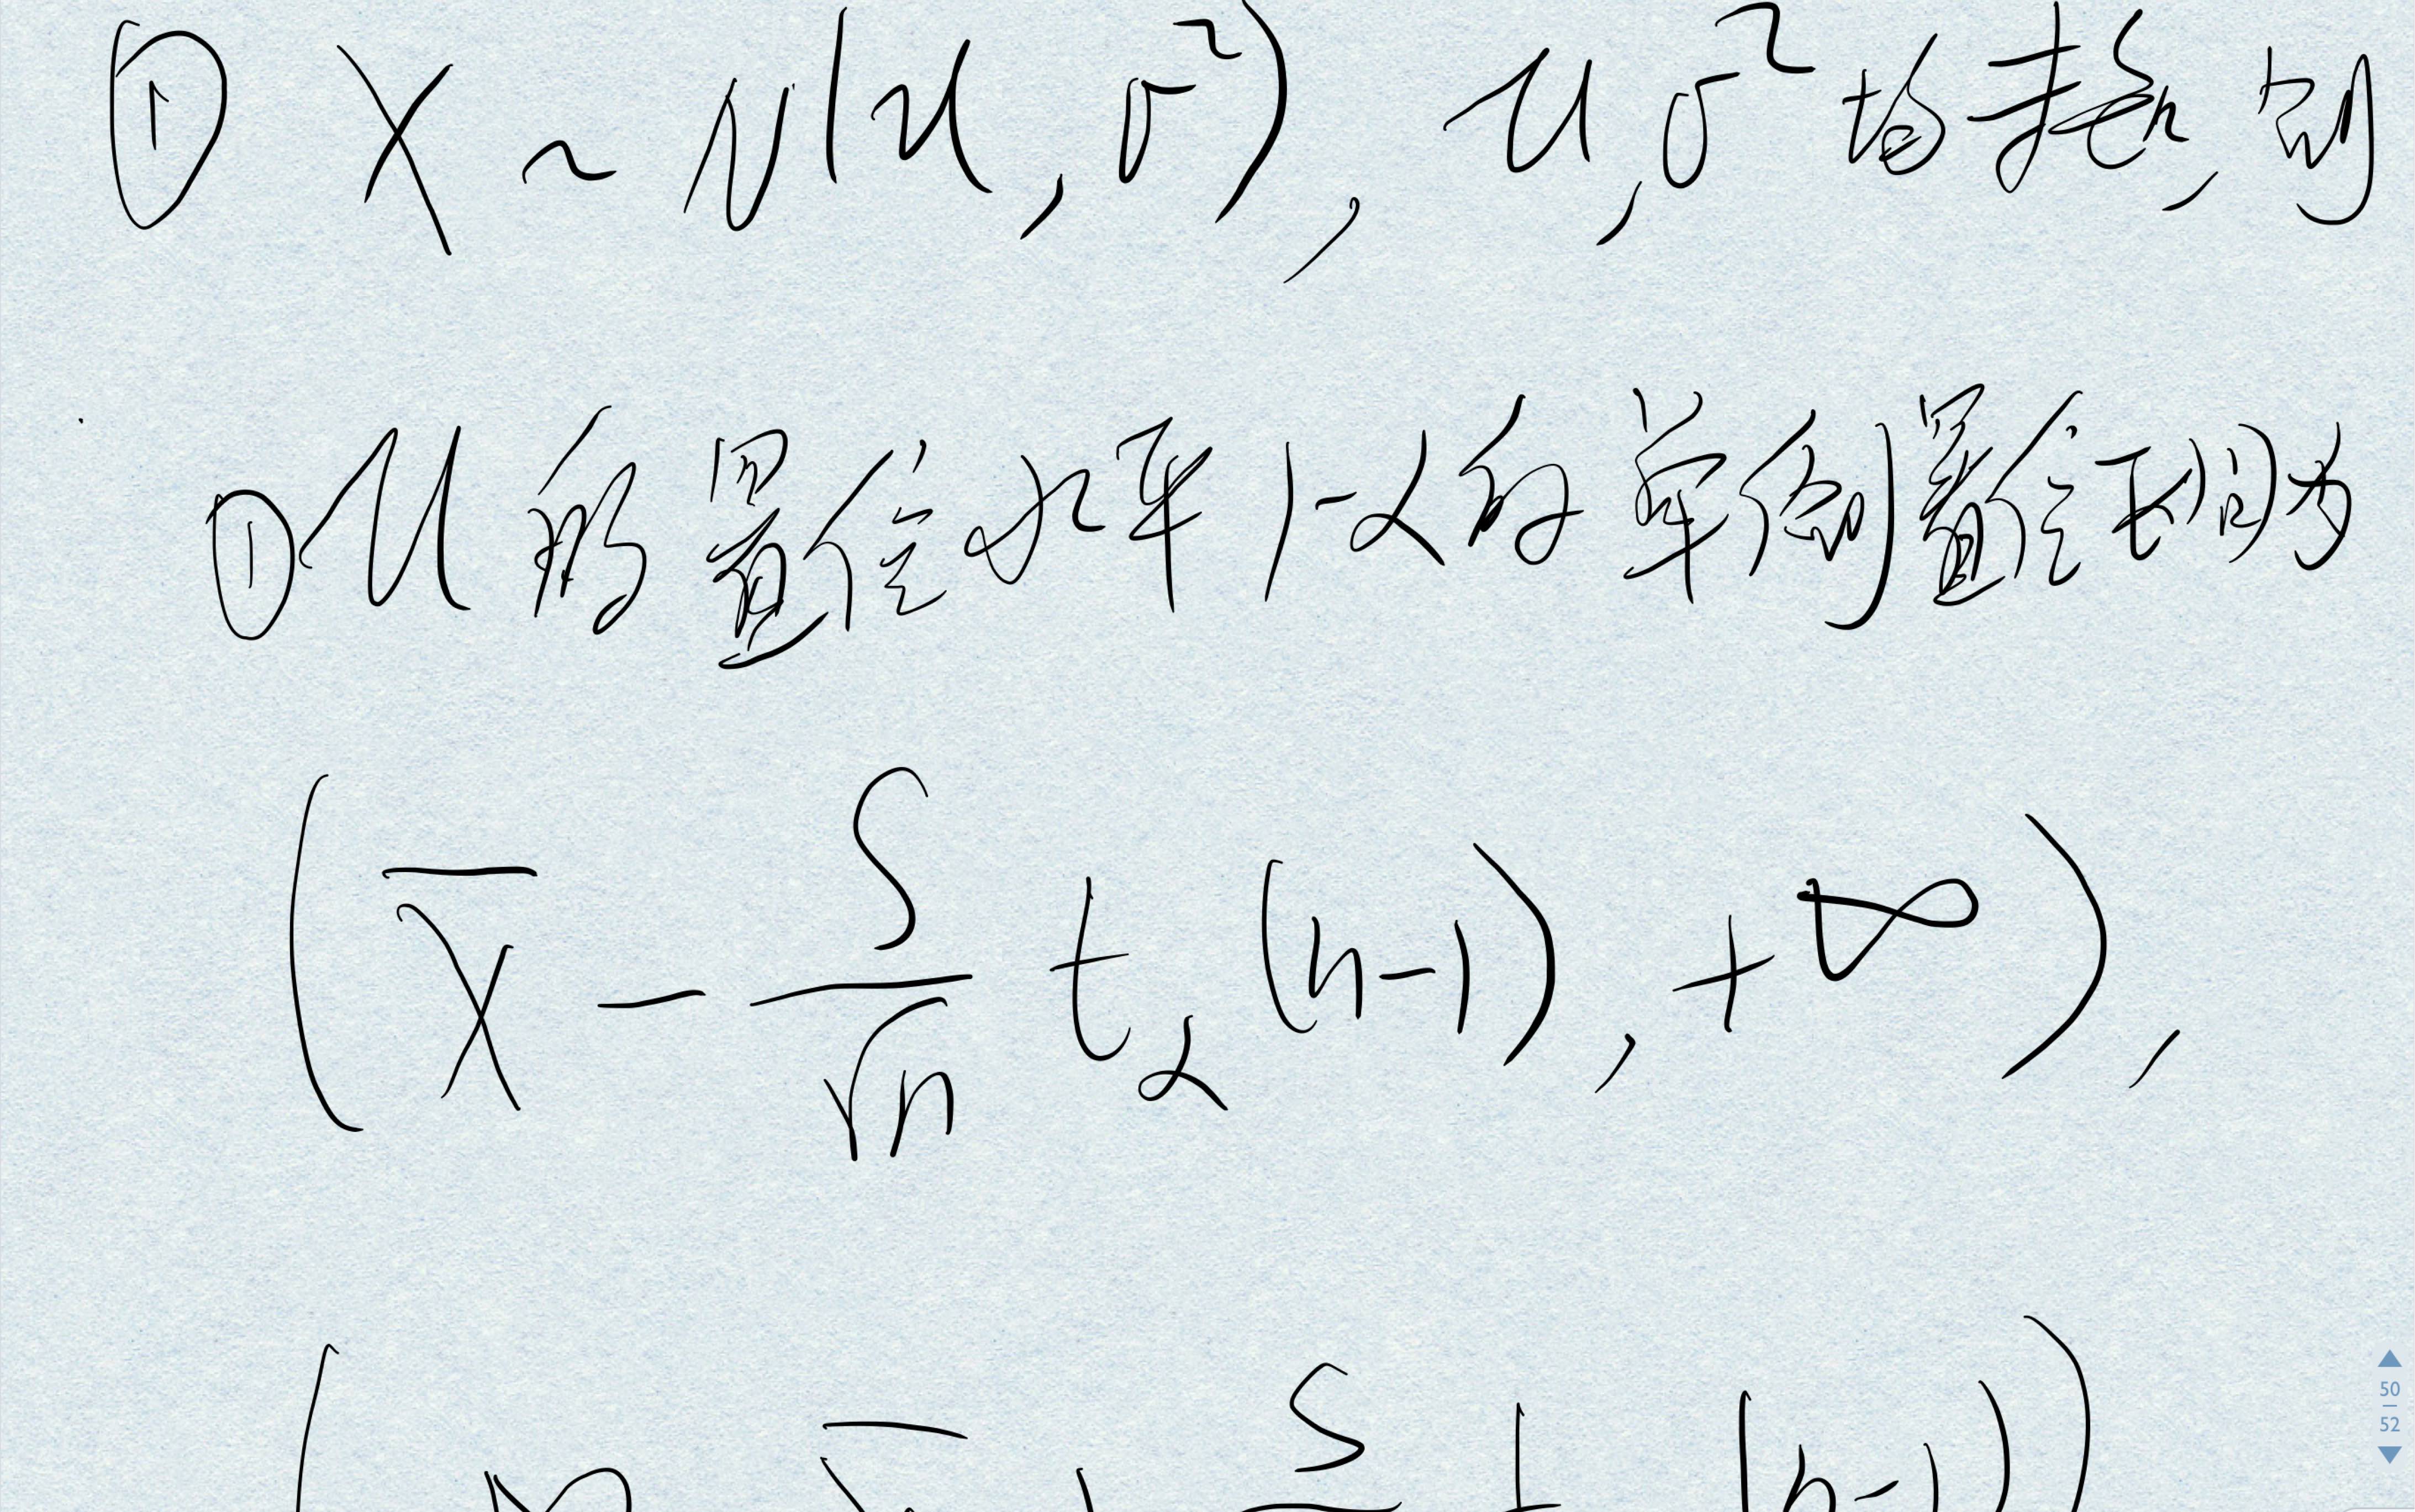 ① X ~ N(μ, σ²), μ, σ² 均未知, 则
① μ 的置信水平 1-α 的单侧置信区间为
( X̄ - S/√n t_α (n-1), +∞ ),
( -∞, X̄ + S/√n t_α (n-1) )
50
52